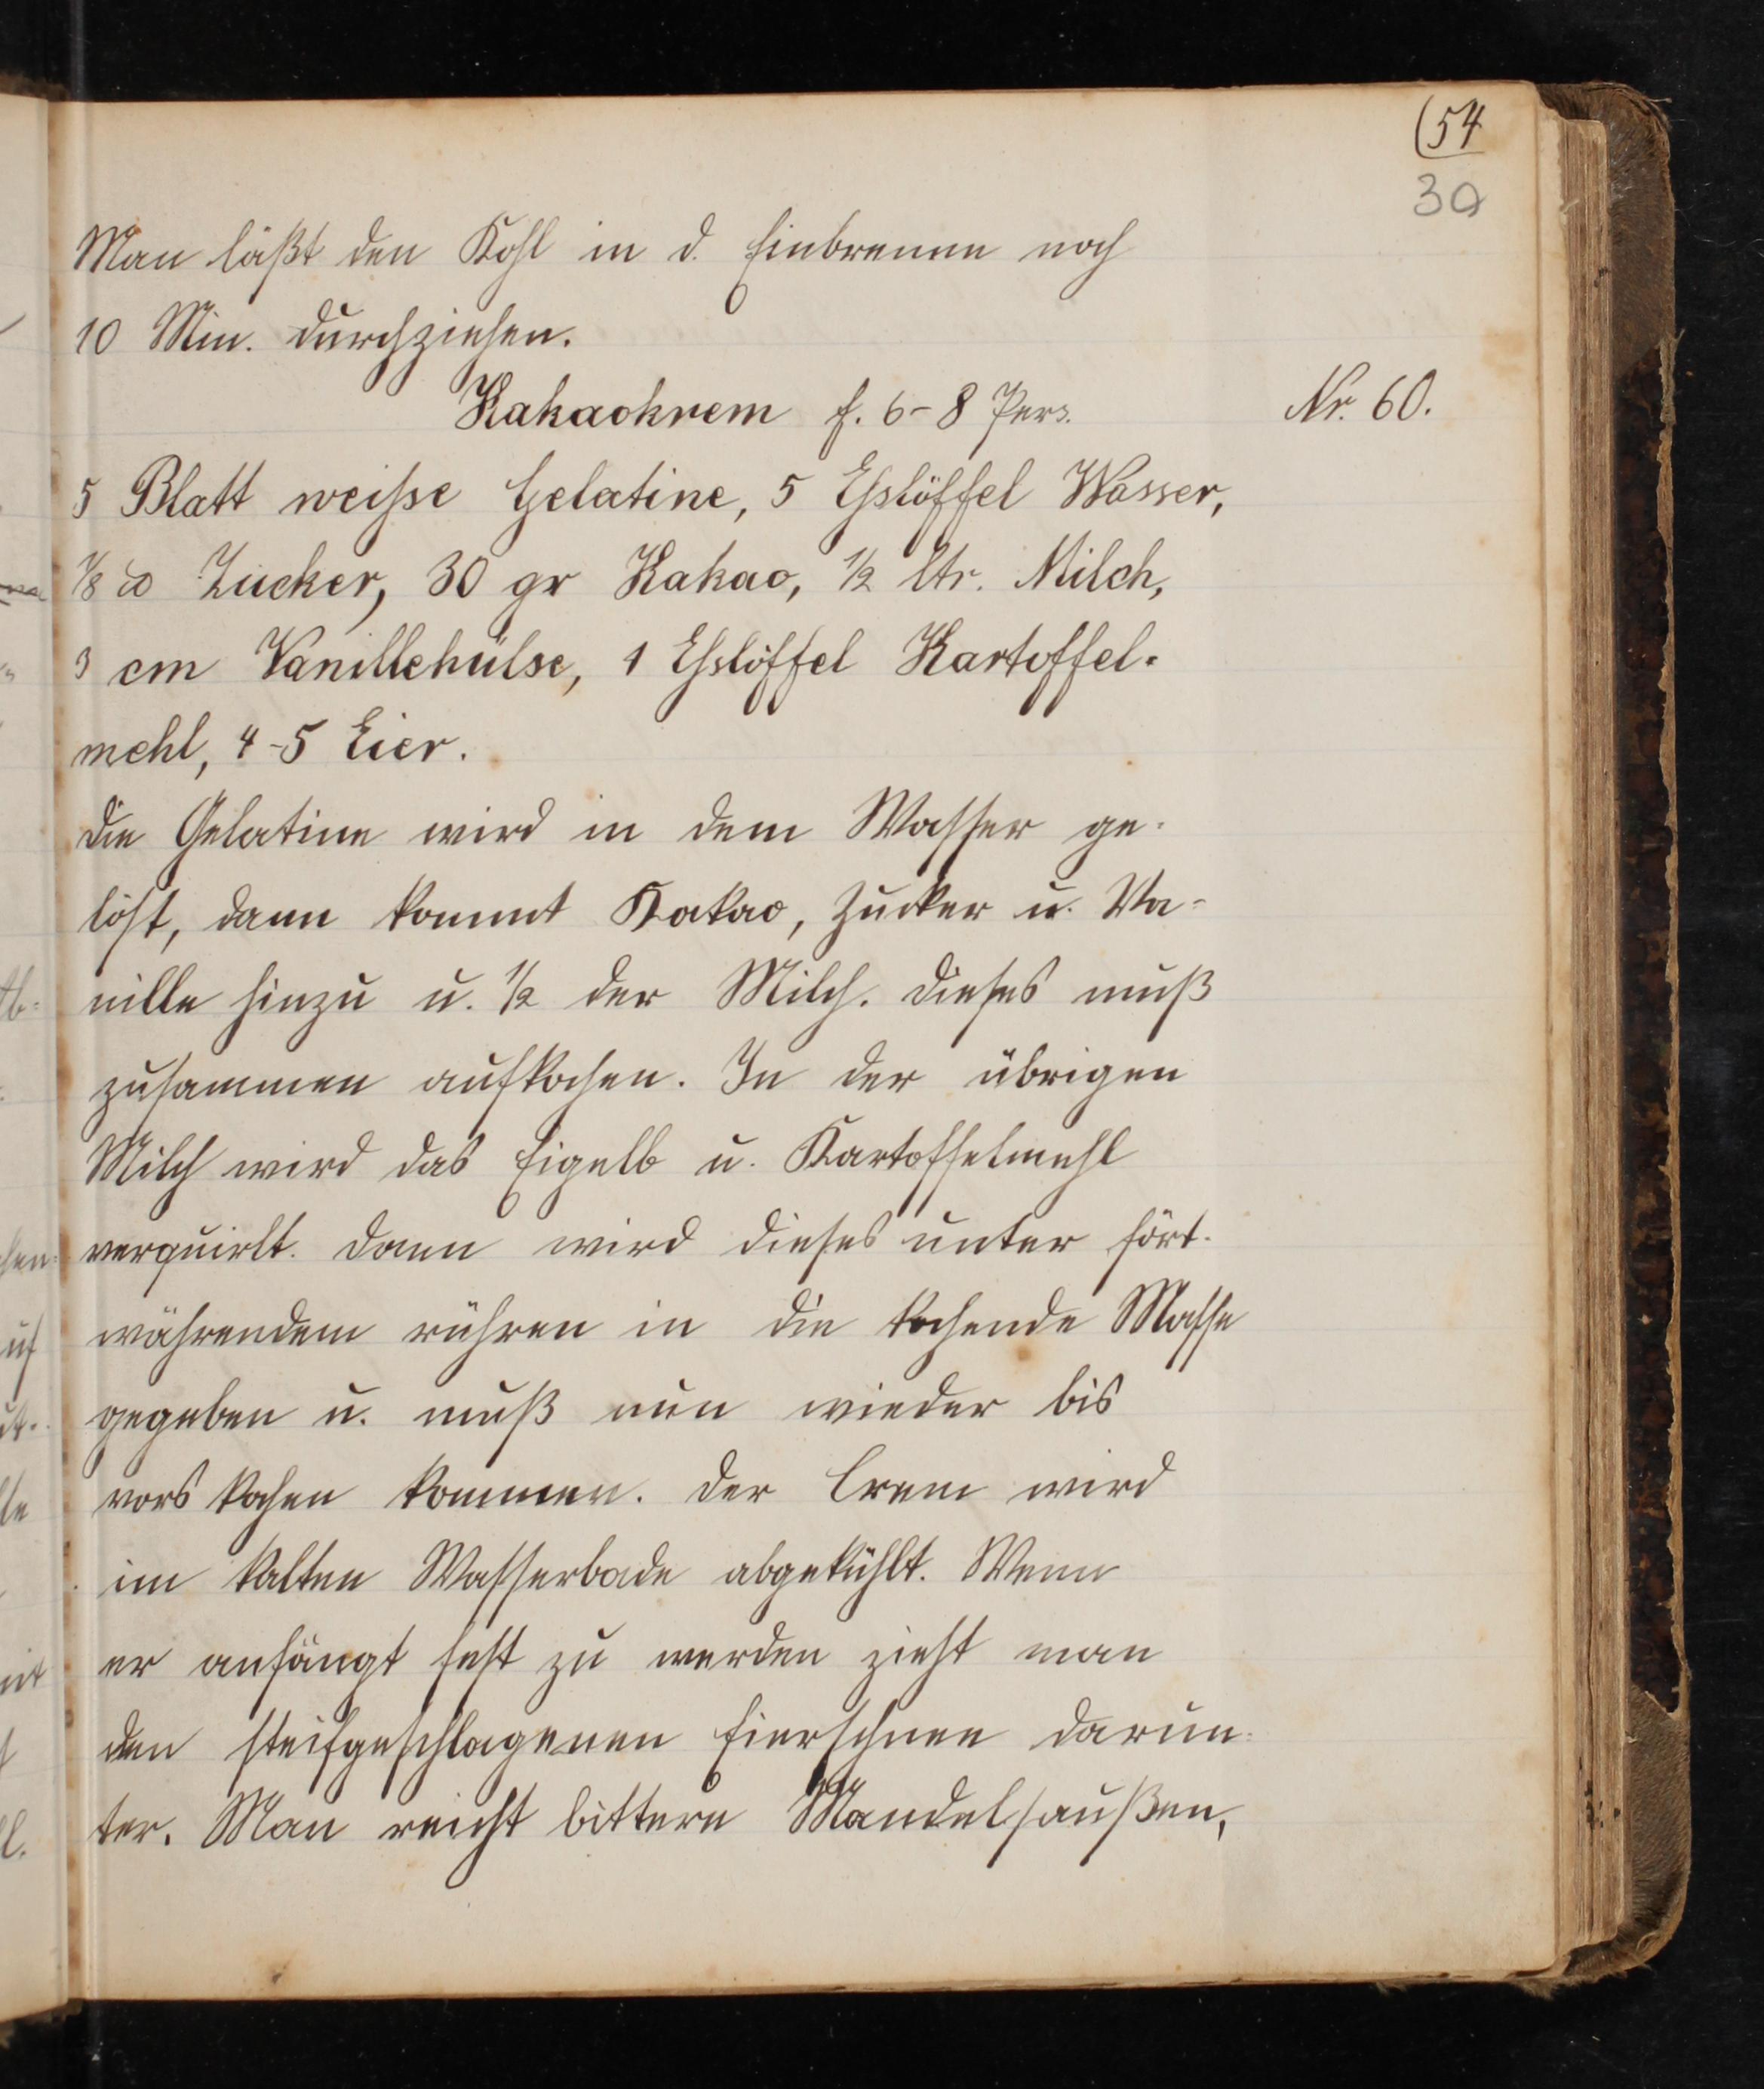 (54
30
Man läßt den Kohl in d. Einbrenne noch
10 Min. durchziehen.
Kakaokrem f. 6-8 Pers. Nr. 60.
5 Blatt weiße Gelatine, 5 Eßlöffel Wasser,
1/8 ℔ Zucker, 30 gr Kakao, 1/2 ltr. Milch,
3 cm Vanillehülse, 1 Eßlöffel Kartoffel-
mehl, 4-5 Eier.
Die Gelatine wird in dem Wasser ge-
löst, dann kommt Kakao, Zucker u. Va-
nille hinzu u. 1/2 der Milch. Dieses muß
zusammen aufkochen. In der übrigen
Milch wird das Eigelb u. Kartoffelmehl
verquirlt. Dann wird dieses unter fort-
währendem rühren in die kochende Masse
gegeben u. muß nun wieder bis
vors kochen kommen. Der Crem wird
im kalten Wasserbade abgekühlt. Wenn
er anfängt fest zu werden zieht man
den steifgeschlagenen Eierschnee darun-
ter. Man reicht bittere Mandelsaußen,